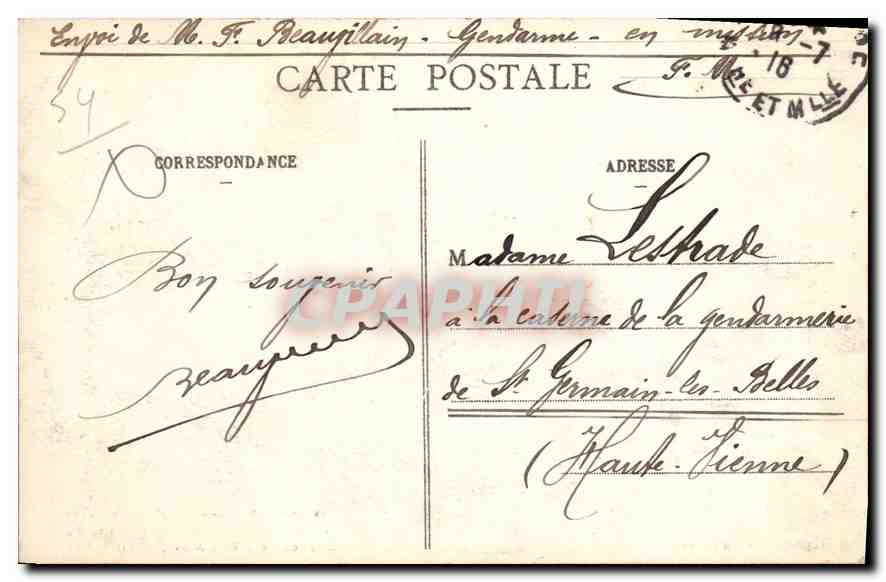 Envoi de M. F. Beauvillain - Gendarme - en mission
F. M.
CARTE POSTALE
18 -7
16
ET MLLE
54
CORRESPONDANCE
ADRESSE
Bon souvenir
Madame Lestrade
à la caserne de la gendarmerie
de St Germain-les-Belles
(Haute-Vienne)
CPAPHIL